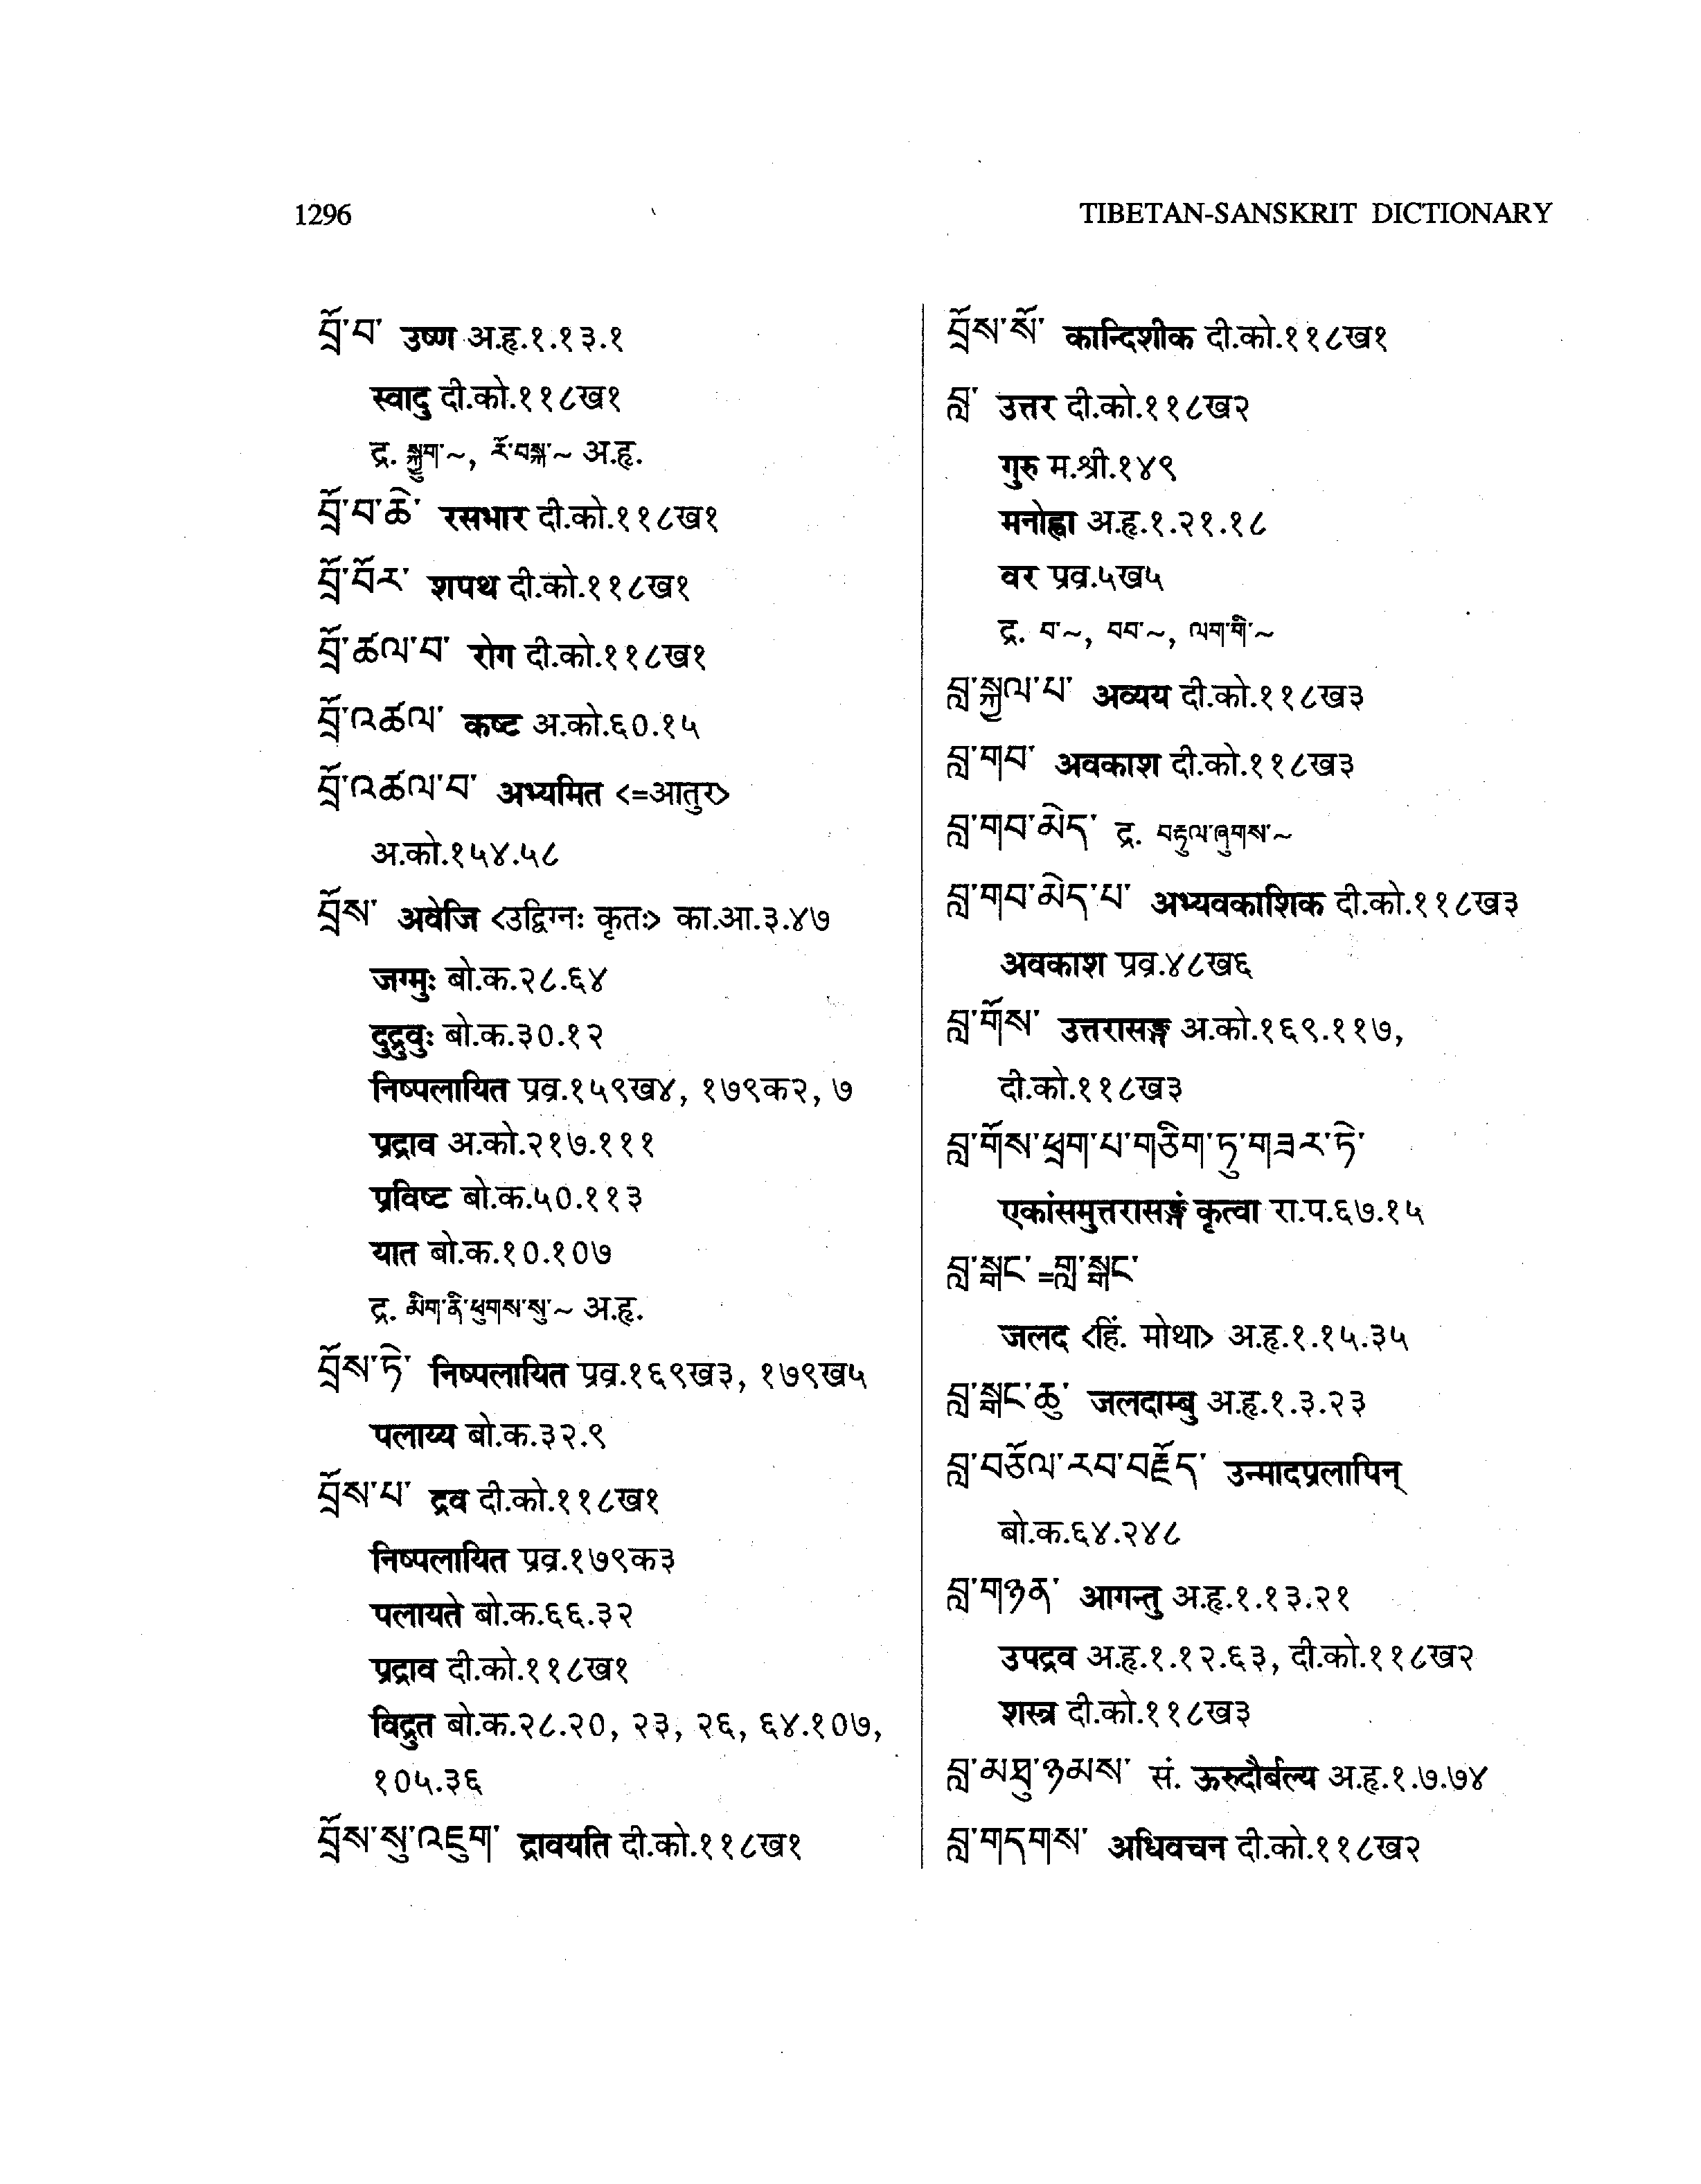 1296
TIBETAN-SANSKRIT DICTIONARY
བྲོ་བ་ उष्ण अ.हृ.१.१३.१
स्वादु दी.को.११८ख१
द्र. སྐྱུག་~, རོ་བསྐ་~ अ.हृ.
བྲོ་བ་ཆེ་ रसभार दी.को.११८ख१
བྲོ་བོར་ शपथ दी.को.११८ख१
བྲོ་ཚལ་བ་ रोग दी.को.११८ख१
བྲོ་འཚལ་ कष्ट अ.को.६०.१५
བྲོ་འཚལ་བ་ अभ्यमित <=आतुर>
अ.को.१५४.५८
བྲོས་ अवेजि <उद्विग्नः कृतः> का.आ.३.४७
जग्मुः बो.क.२८.६४
दुद्रुवुः बो.क.३०.१२
निष्पलायित प्रव्र.१५९ख४, १७९क२, ७
प्रद्राव अ.को.२१७.१११
प्रविष्ट बो.क.५०.११३
यात बो.क.१०.१०७
द्र. མིག་ནི་ཕུགས་སུ་~ अ.हृ.
བྲོས་ཏེ་ निष्पलायित प्रव्र.१६९ख३, १७९ख५
पलाय्य बो.क.३२.९
བྲོས་པ་ द्रव दी.को.११८ख१
निष्पलायित प्रव्र.१७९क३
पलायते बो.क.६६.३२
प्रद्राव दी.को.११८ख१
विद्रुत बो.क.२८.२०, २३, २६, ६४.१०७,
१०५.३६
བྲོས་སུ་འཇུག་ द्रावयति दी.को.११८ख१
བྲོས་སོ་ कान्दिशीक दी.को.११८ख१
བླ་ उत्तर दी.को.११८ख२
गुरु म.श्री.१४९
मनोह्वा अ.हृ.१.२१.१८
वर प्रव्र.५ख५
द्र. བ་~, བབ་~, ལག་གི་~
བླ་སྐྱལ་པ་ अव्यय दी.को.११८ख३
བླ་གབ་ अवकाश दी.को.११८ख३
བླ་གབ་མེད་ द्र. བརྟུལ་ཞུགས་~
བླ་གབ་མེད་པ་ अभ्यवकाशिक दी.को.११८ख३
अवकाश प्रव्र.४८ख६
བླ་གོས་ उत्तरासङ्ग अ.को.१६९.११७,
दी.को.११८ख३
བླ་གོས་ཕྲག་པ་གཅིག་ཏུ་གཟར་ཏེ་
एकांसमुत्तरासङ्गं कृत्वा रा.प.६७.१५
བླ་སྒང་=གླ་སྒང་
जलद <हिं. मोथा> अ.हृ.१.१५.३५
བླ་སྒང་ཆུ་ जलदाम्बु अ.हृ.१.३.२३
བླ་བཅོལ་རབ་བརྗོད་ उन्मादप्रलापिन्
बो.क.६४.२४८
བླ་གཉན་ आगन्तु अ.हृ.१.१३.२१
उपद्रव अ.हृ.१.१२.६३, दी.को.११८ख२
शस्त्र दी.को.११८ख३
བླ་མཐུ་ཉམས་ सं. ऊरुदौर्बल्य अ.हृ.१.७.७४
བླ་གདགས་ अधिवचन दी.को.११८ख२